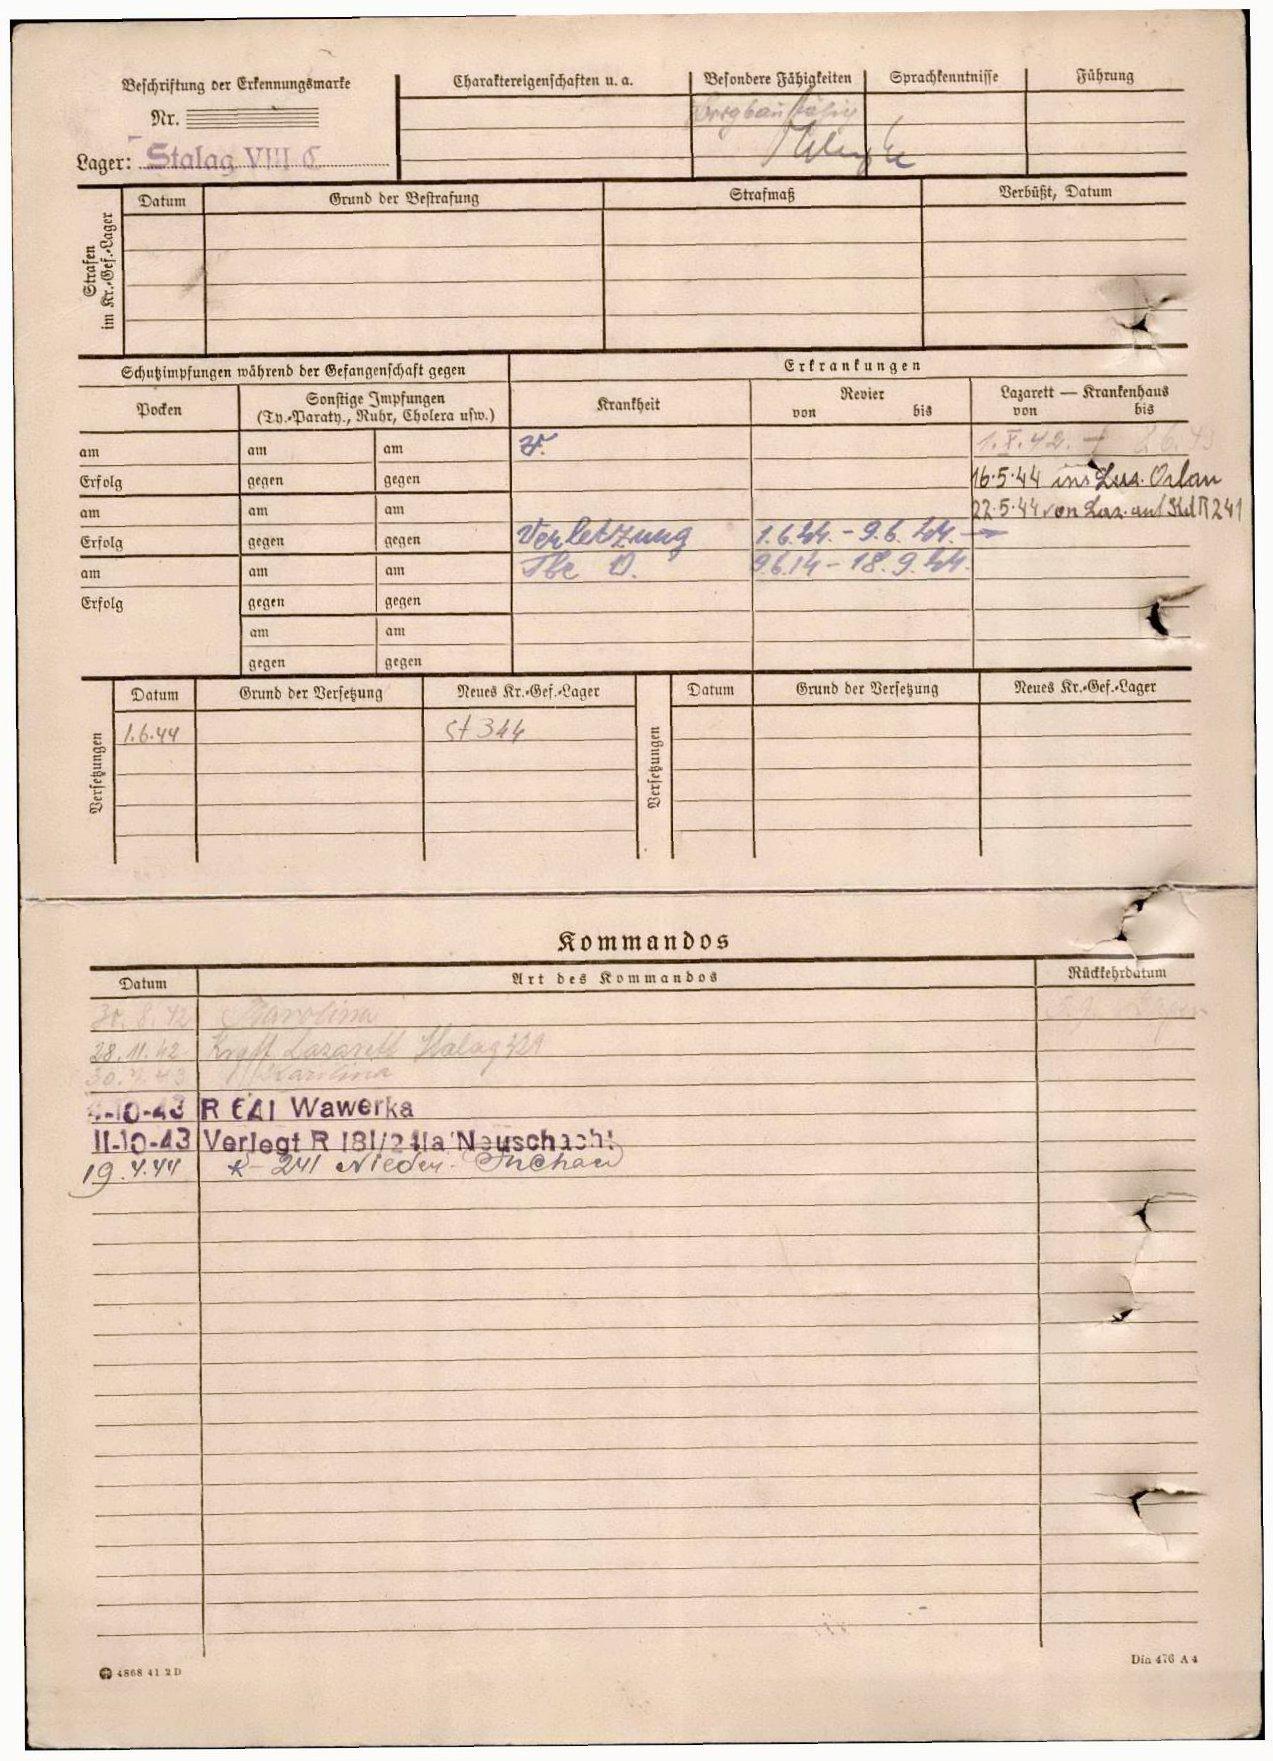 Beschriftung der Erkennungsmarke
Nr.
Lager: Stalag VIII
Charaktereigenschaften u. a.
Besondere Fähigkeiten
Sprachkenntnisse
Führung
Bergbaufähig
Strafen im Kr.-Gef.-Lager
Datum
Grund der Bestrafung
Strafmaß
Verbüßt, Datum
Schutzimpfungen während der Gefangenschaft gegen
Erkrankungen
Pocken
Sonstige Impfungen
(Ty.-Paraty., Ruhr, Cholera usw.)
Krankheit
Revier
von bis
Lazarett — Krankenhaus
von bis
am am am
Erfolg gegen gegen 16.5.44 ins Laz. Orlau
am am am 22.5.44 von Laz. auf Kd R 241
Erfolg gegen gegen Verletzung 1.6.44. - 9.6.44.
am am am Tbc D. 9.6.14 - 18.9.44.
Erfolg gegen gegen
am am
gegen gegen
Versetzungen
Datum Grund der Versetzung Neues Kr.-Gef.-Lager
1.6.44 St 344
Versetzungen
Datum Grund der Versetzung Neues Kr.-Gef.-Lager
Kommandos
Datum Art des Kommandos Rückkehrdatum
30.8.42 Karolina
28.11.42 Lazarett Stalag
Karolina
-10-43 R 641 Wawerka
11-10-43 Verlegt R 181/241a Neuschacht
19.4.44 R 241 Nieder-Suchau
4868 41 2 D
Din 476 A 4